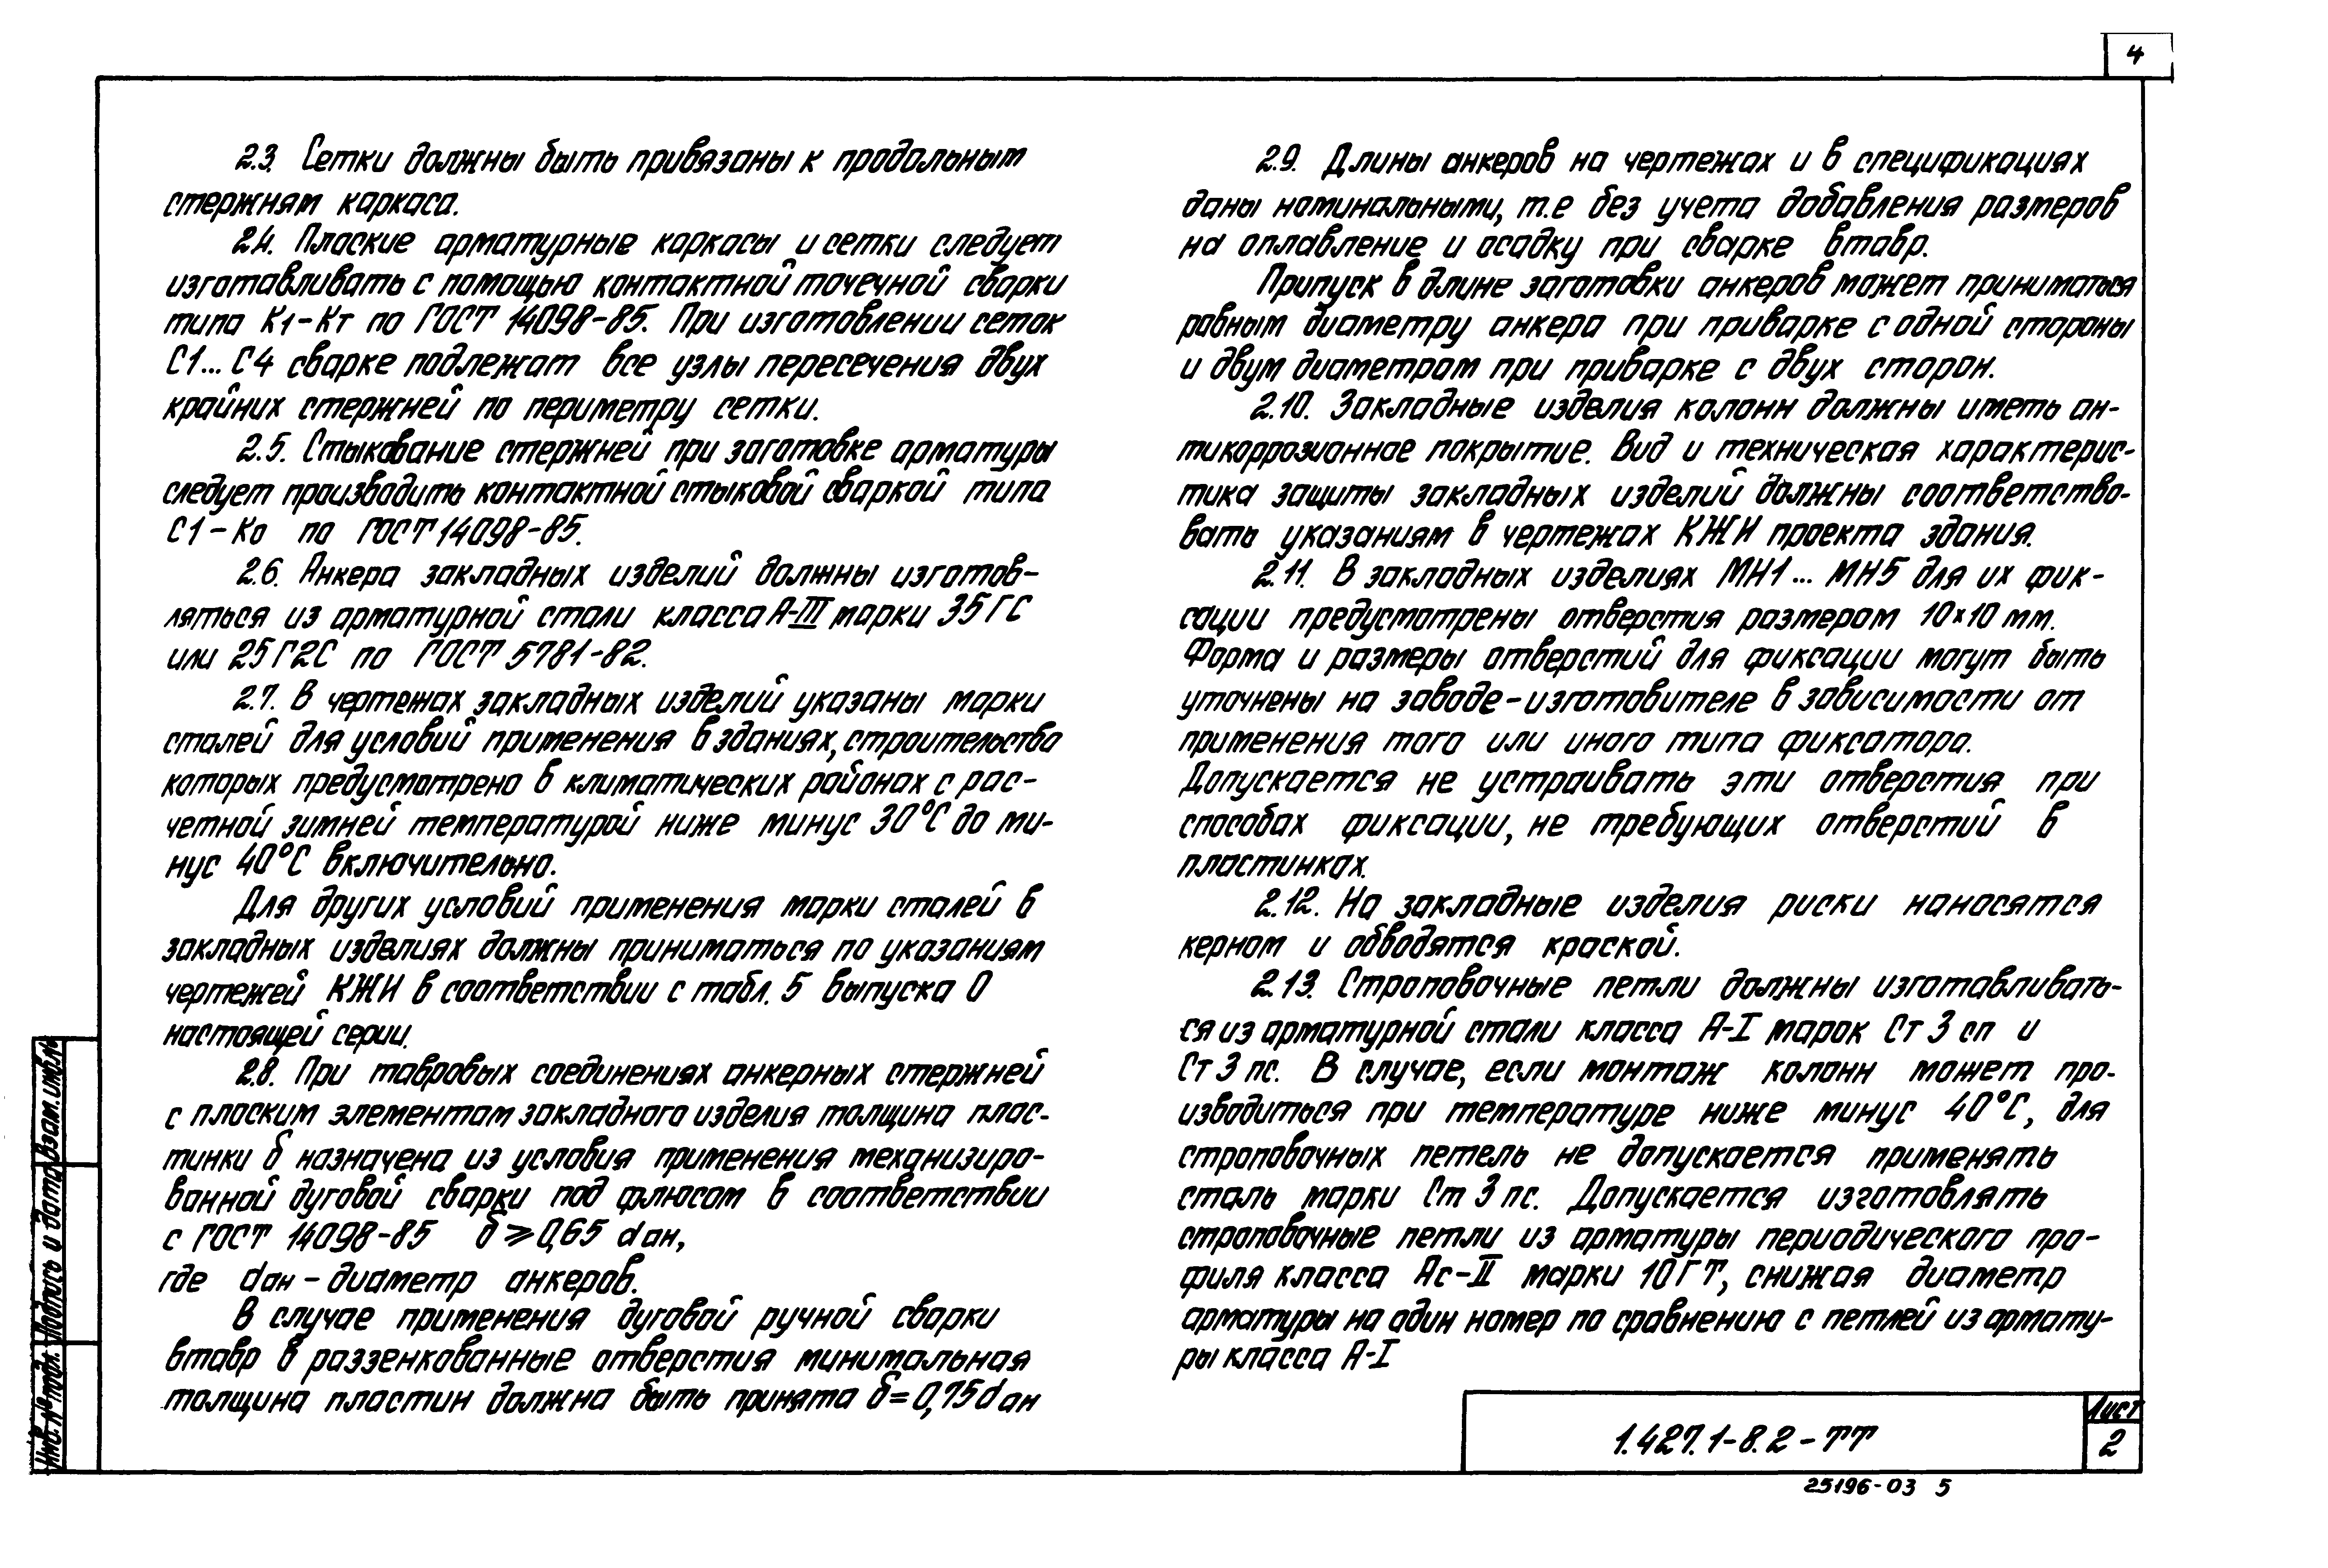 4
2.3. Сетки должны быть привязаны к продольным
стержням каркаса.
2.4. Плоские арматурные каркасы и сетки следует
изготавливать с помощью контактной точечной сварки
типа К1-Кт по ГОСТ 14098-85. При изготовлении сеток
С1... С4 сварке подлежат все узлы пересечения двух
крайних стержней по периметру сетки.
2.5. Стыкование стержней при заготовке арматуры
следует производить контактной стыковой сваркой типа
С1-Ко по ГОСТ 14098-85.
2.6. Анкера закладных изделий должны изготов-
ляться из арматурной стали класса А-III марки 35ГС
или 25Г2С по ГОСТ 5781-82.
2.7. В чертежах закладных изделий указаны марки
сталей для условий применения в зданиях, строительство
которых предусмотрено в климатических районах с рас-
четной зимней температурой ниже минус 30°С до ми-
нус 40°С включительно.
Для других условий применения марки сталей в
закладных изделиях должны приниматься по указаниям
чертежей КЖИ в соответствии с табл. 5 выпуска 0
настоящей серии.
2.8. При тавровых соединениях анкерных стержней
с плоским элементом закладного изделия толщина плас-
тинки δ назначена из условия применения механизиро-
ванной дуговой сварки под флюсом в соответствии
с ГОСТ 14098-85 δ ⩾ 0,65 dан,
где dан - диаметр анкеров.
В случае применения дуговой ручной сварки
втавр в раззенкованные отверстия минимальная
толщина пластин должна быть принята δ = 0,75dан
2.9. Длины анкеров на чертежах и в спецификациях
даны номинальными, т.е без учета добавления размеров
на оплавление и осадку при сварке втавр.
Припуск в длине заготовки анкеров может приниматься
равным диаметру анкера при приварке с одной стороны
и двум диаметрам при приварке с двух сторон.
2.10. Закладные изделия колонн должны иметь ан-
тикоррозионное покрытие. Вид и техническая характерис-
тика защиты закладных изделий должны соответство-
вать указаниям в чертежах КЖИ проекта здания.
2.11. В закладных изделиях МН1... МН5 для их фик-
сации предусмотрены отверстия размером 10×10 мм.
Форма и размеры отверстий для фиксации могут быть
уточнены на заводе-изготовителе в зависимости от
применения того или иного типа фиксатора.
Допускается не устраивать эти отверстия при
способах фиксации, не требующих отверстий в
пластинках.
2.12. На закладные изделия риски наносятся
керном и обводятся краской.
2.13. Строповочные петли должны изготавливать-
ся из арматурной стали класса А-I марок Ст 3 сп и
Ст 3 пс. В случае, если монтаж колонн может про-
изводиться при температуре ниже минус 40°С, для
строповочных петель не допускается применять
сталь марки Ст 3 пс. Допускается изготовлять
строповочные петли из арматуры периодического про-
филя класса Ас-II марки 10ГТ, снижая диаметр
арматуры на один номер по сравнению с петлей из армату-
ры класса А-I
Инв. № подл. Подпись и дата Взам. инв. №
1.427.1-8.2-ТТ
Лист
2
25196-03 5